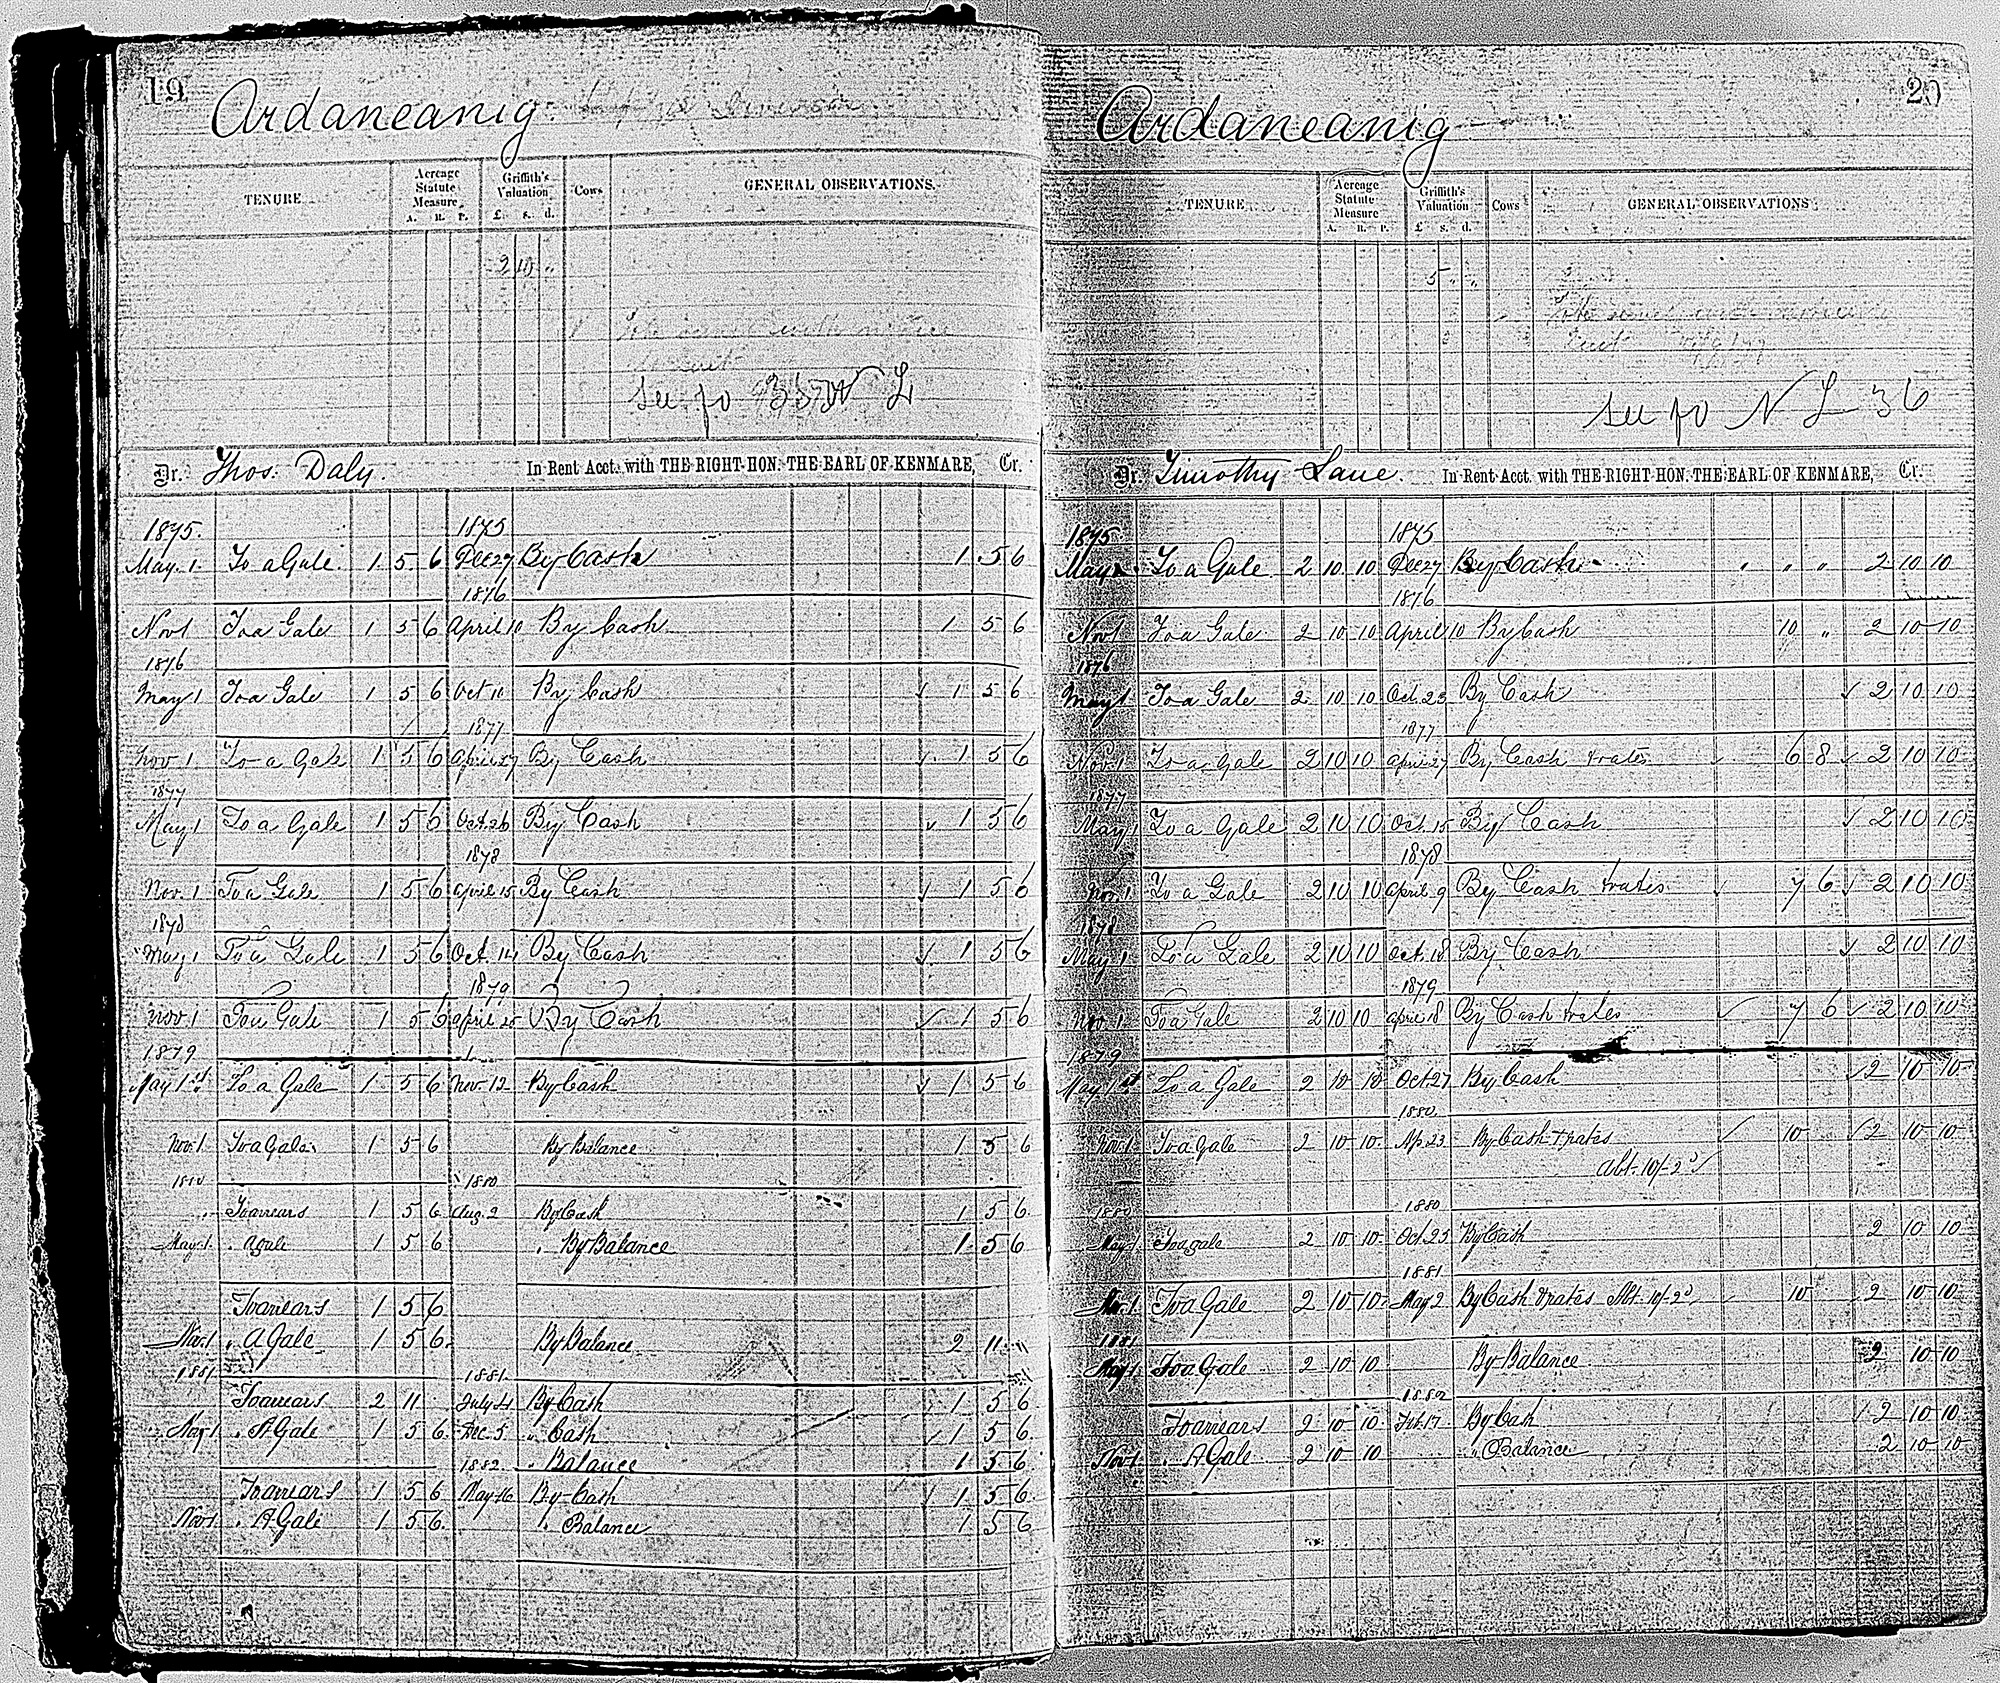 19
Ardaneanig
TENURE Acreage Statute Measure A. R. P. Griffith's Valuation £. s. d. Cows GENERAL OBSERVATIONS.
2 10 "
see fo L
Dr. Thos: Daly. In Rent Acct. with THE RIGHT HON: THE EARL OF KENMARE, Cr.
1875. 1875
May. 1. To a Gale. 1. 5. 6 Dec 27 By Cash 1. 5 6
1876
Nov 1 To a Gale 1 5 6 April 10 By Cash 1 5 6
1876
May 1 To a Gale 1 5 6 Oct 10 By Cash ✓ 1 5 6
1877
Nov 1. To a Gale 1 5 6 April 27 By Cash ✓ 1 5 6
1877
May 1 To a Gale 1 5 6 Oct. 26 By Cash ✓ 1 5 6
1878
Nov. 1 To a Gale 1 5 6 April 15 By Cash ✓ 1 5 6
1878
May 1 To a Gale 1 5 6 Oct. 14 By Cash ✓ 1 5 6
1879
Nov 1 To a Gale 1 5 6 April 25 By Cash ✓ 1 5 6
1879
May 1st To a Gale 1 5 6 Nov. 12 By Cash ✓ 1 5 6
Nov. 1 To a Gale 1 5 6 By Balance 1 5 6
1880 1880
" To arrears 1 5 6 Aug. 2 By Cash 1 5 6
May 1. " a gale 1 5 6 " By Balance 1 5 6
To arrears 1 5 6
Nov. 1 " A Gale 1 5 6. By Balance 2 11 "
1881 1881.
To arrears 2 11 July 4 By Cash 1 5 6
May 1 " A Gale 1 5 6 Dec. 5 " Cash ✓ 1 5 6
1882 " Balance 1 5 6
To arrears 1 5 6 May 16 By Cash ✓ 1 5 6
Nov 1 " A Gale 1 5 6. " Balance 1 5 6
20
Ardaneanig
TENURE Acreage Statute Measure A. R. P. Griffith's Valuation £ s. d. Cows GENERAL OBSERVATIONS
5 " "
see fo N L 36
Dr. Timothy Lane. In Rent Acct. with THE RIGHT HON. THE EARL OF KENMARE, Cr.
1875 1875
May 1 To a Gale 2 10 10 Dec 27 By Cash " " " 2 10 10
1876
Nov 1 To a Gale 2 10 10 April 10 By Cash 10 " 2 10 10
1876
May 1 To a Gale 2 10 10 Oct. 23 By Cash ✓ 2 10 10
1877
Nov. 1 To a Gale 2 10 10 April 27 By Cash & rates ✓ 6 8 ✓ 2 10 10
1877
May 1 To a Gale 2 10 10 Oct. 15 By Cash ✓ 2 10 10
1878
Nov. 1 To a Gale 2 10 10 April 9 By Cash & rates ✓ 7 6 ✓ 2 10 10
1878
May 1 To a Gale 2 10 10 Oct. 18 By Cash ✓ 2 10 10
1879
Nov. 1 To a Gale 2 10 10 April 18 By Cash & rates ✓ 7 6 ✓ 2 10 10
1879
May 1st To a Gale 2 10 10 Oct 27 By Cash ✓ 2 10 10
1880
Nov. 1 To a Gale 2 10 10 Ap. 23 By Cash & rates ✓ 10 ✓ 2 10 10
Abt. 10/- 2d ✓
1880 1880
May 1. To a gale 2 10 10 Oct. 25 By Cash 2 10 10
1881
Nov. 1 To a Gale 2 10 10 May 2 By Cash & rates Abt. 10/- 2d 10 2 10 10
1881
May 1. To a Gale 2 10 10 By Balance 2 10 10
1882
To arrears 2 10 10 Feb. 17 By Cash ✓ 2 10 10
Nov 1 " A Gale 2 10 10 " Balance 2 10 10